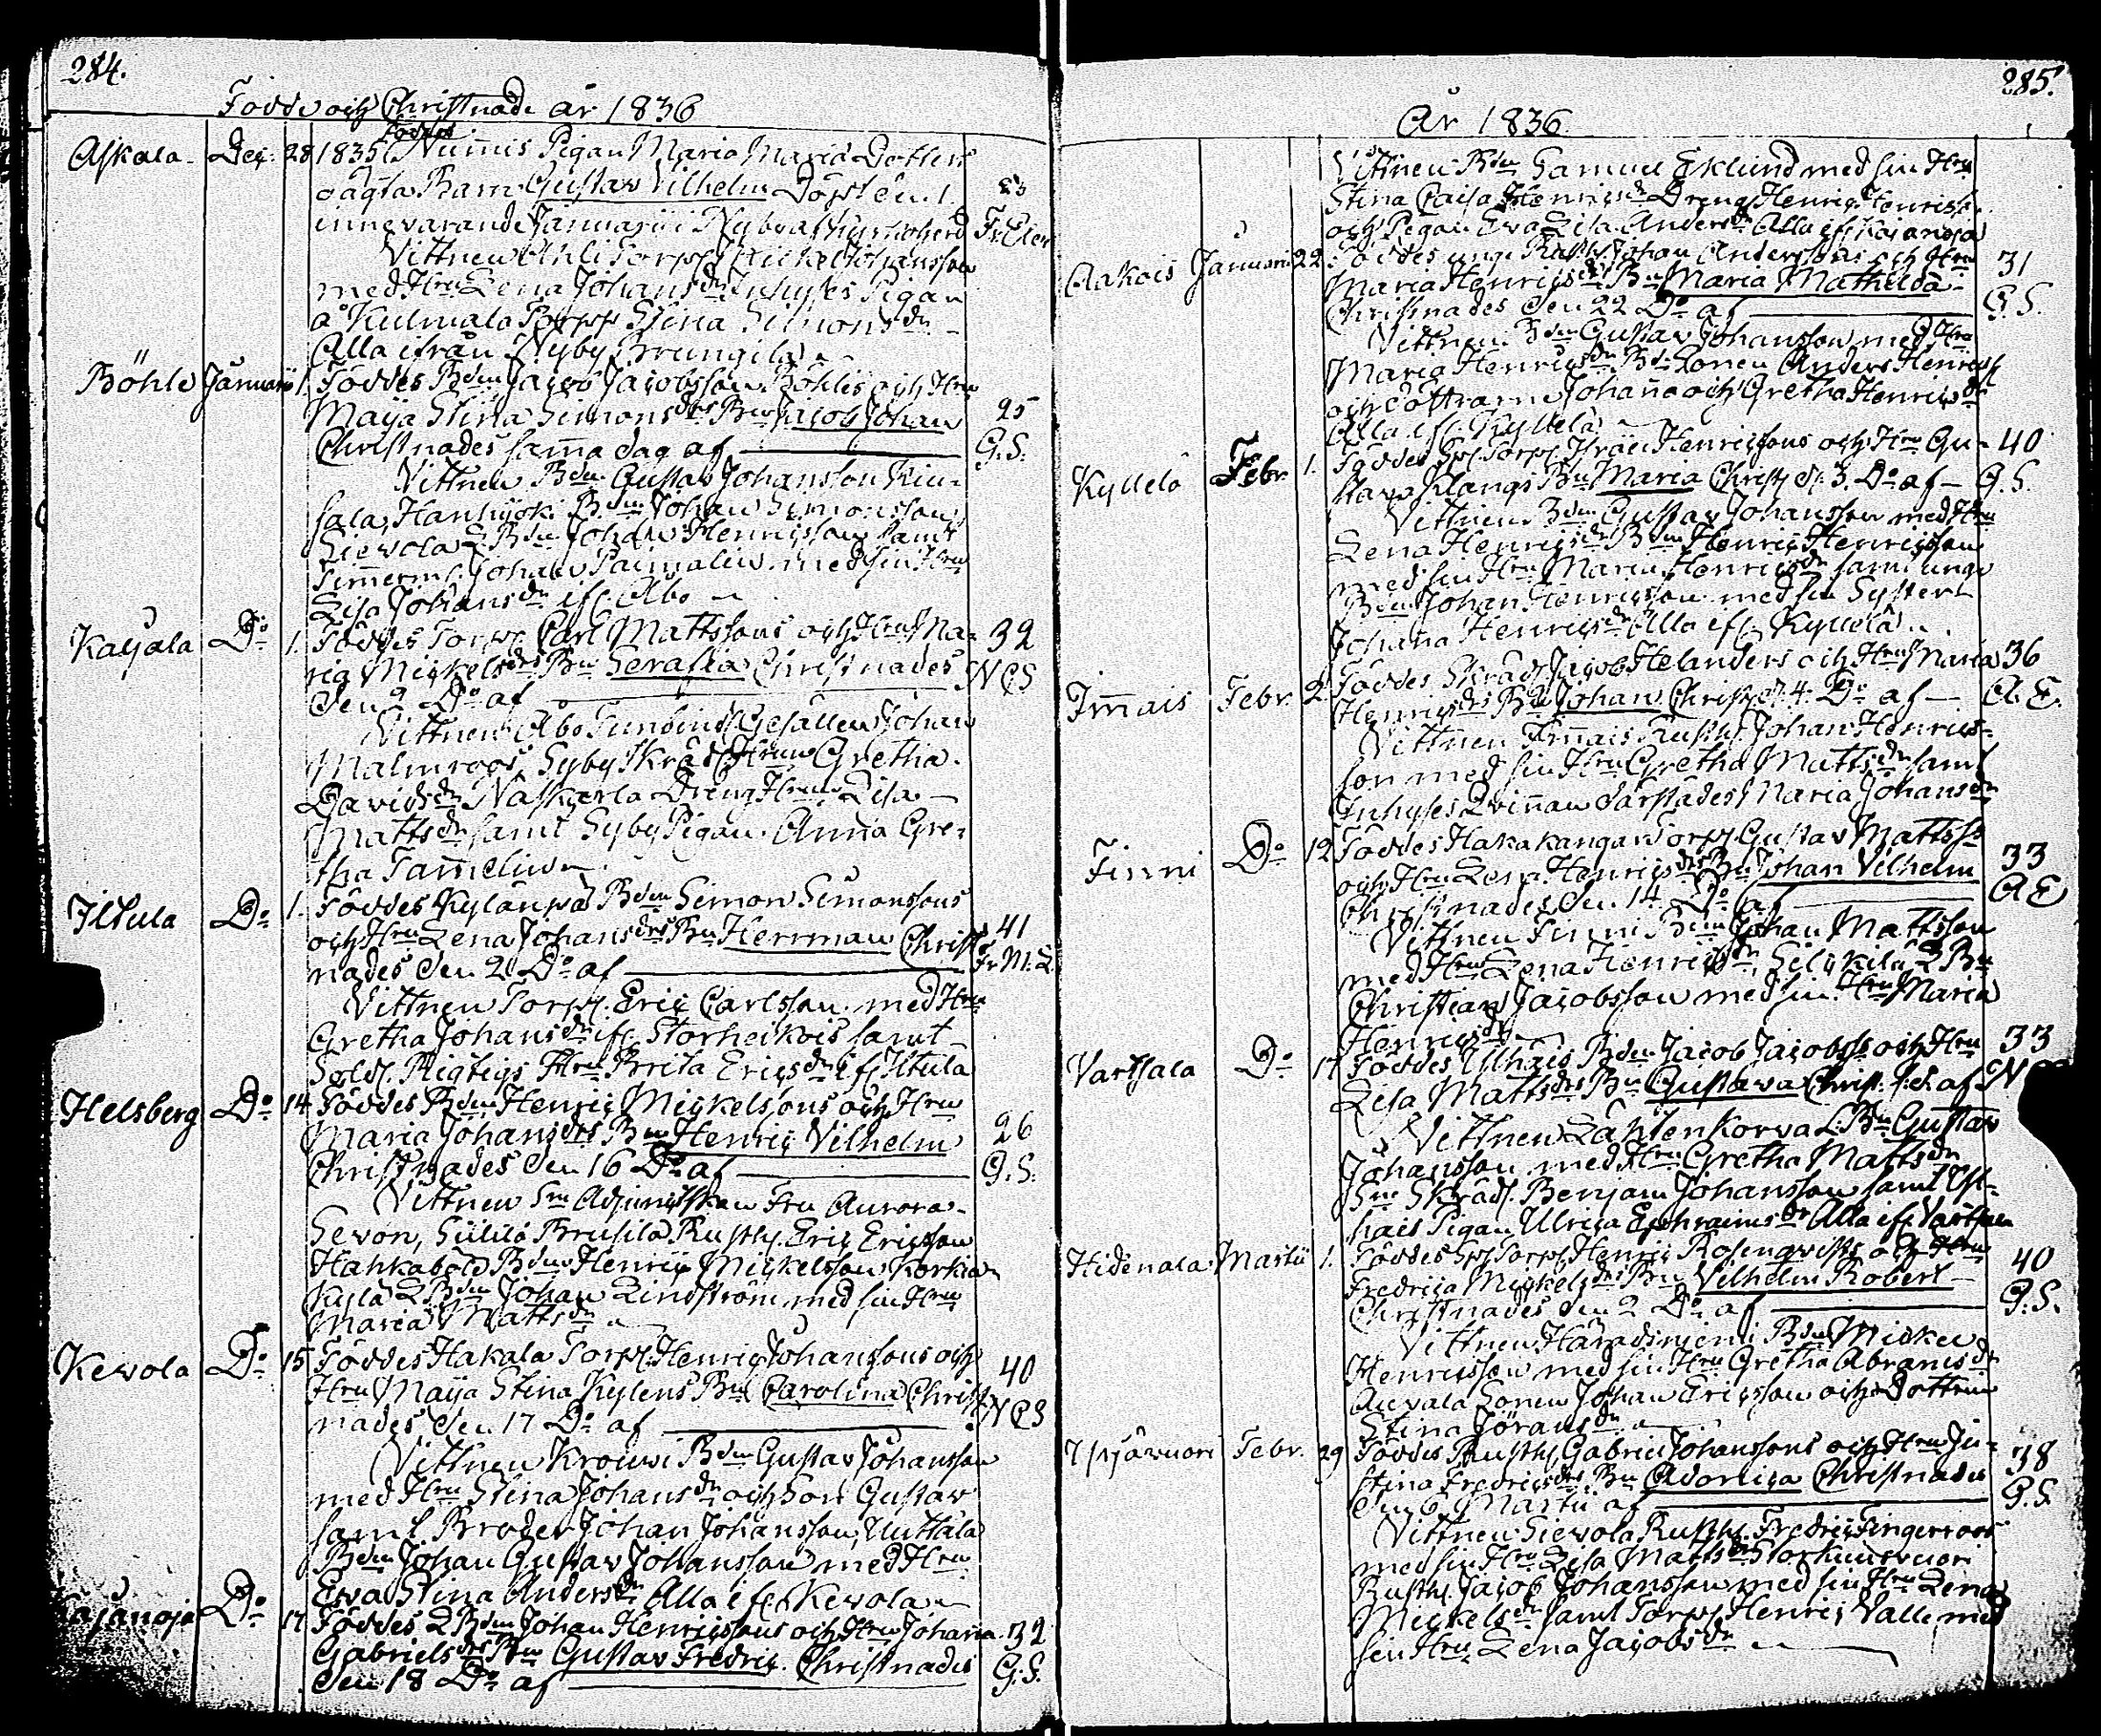 284.
Födde och Christnade år 1836
Askala Dec: 28 1835 Föddes Nummis Pigan Maria Davids Dotters
oägta Barn Gustav Vilhelm Döpt den 1. 23
innevarande Januarii i Nyby af Fr: Elen
Vittnen Torpp. Mickel Johansson
med Hru Lena Johans dr Inhyses Pigan
å Kulmala Torpp Stina Simons dr
Alla ifrån Nyby
Böhle Januarii 1. Föddes Bdn Jacob Jacobsson Böhlis och Hru
Maija Stina Simons drs Bn Jacob Johan 25
Christnades samma dag af G.S.
Vittnen Bdn Gustav Johansson
Bdn Johan Simonsson
Sievola L Bdn Johan Henricsson samt
Timmerm. Johan Palmalin med sin Hru
Lisa Johans dr if. Åbo
Kajala Do 1. Föddes Torpp. Carl Mattssons och Hru Ma- 32
ria Mickels drs Bn Serafia Christnades NCS
den 2 Do af
Vittnen Åbo Gesällen Johan
Malmroos Syby Skräd. Hrun Gretha
Davids dr Naskarla Dreng Hrun Lisa
Matts dr samt Syby Pigan Anna Gre-
tha Tammelin
Iltula Do 1. Föddes Kylänpä Bdn Simon Simonssons
och Hru Lena Johans drs Bn Herrman Christ- 41
nades den 2 Do af Fr M. L.
Vittnen Torpp. Eric Carlsson med Hru
Gretha Johans dr if. Storheikois samt
Sold. Rigtigs Hru Brita Erics dr if. Iltula
Helsberg Do 14 Föddes Bdn Henric Mickelssons och Hru
Maria Johans drs Bn Henric Vilhelm 26
Christnades den 16 Do af G.S.
Vittnen Fru Aurora
Sevon, Rusth. Eric Ericsson
Bdn Henric Mickelsson Korkia
kylä L Bdn Johan Lindström med sin Hru
Maria Matts dr
Kevola Do 15 Föddes Hakala Torpp. Henric Johanssons och 40
Hru Maija Stina Kylens Bn Carolina Christ-
nades den 17 Do af NCS
Vittnen Krouvi Bdn Gustav Johansson
med Hru Stina Johans dr och Son Gustav
samt Broder Johan Johansson, Uuttala
Bdn Johan Gustav Johansson med Hru
Eva Stina Anders dr Alla if. Kevola
Kajanoja Do 17 Föddes L Bdn Johan Henricssons och Hru Johanna 32
Gabriels drs Bn Gustav Fredric Christnades
den 18 Do af G.S.
285.
År 1836
Vittnen Bdn Samuel Eklund med sin Hru
Stina Caisa Henrics dr Dreng Henric Henricss.
och Pigan Eva Lisa Anders dr Alla if. Kajanoja
Aakois Januarii 22. Föddes unge Rusth. Johan Anderssons och Hru 31
Maria Henrics drs Bn Maria Mathilda
Christnades den 22 Do af G.S.
Vittnen Bdn Gustav Johansson med Hru
Maria Henrics dr Bd. Sonen Anders Henricss.
och döttrarne Johanna och Gretha Henrics dr
Alla if. Kyllelä
Kyllelä Febr 1. Föddes Torpp. Henricssons och Hru Gu- 40
stava Klangs Bn Maria Christ. d. 3. Do af G.S.
Vittnen Bdn Gustav Johansson med Hru
Lena Henrics dr Bdn Henric Henricsson
med sin Hru Maria Henrics dr samt unge
Bdn Johan Henricsson med sin Syster
Johanna Henrics dr Alla if. Kyllelä
Immais Febr. 2. Föddes Skräd. Jacob Helanders och Hru Maria 36
Henrics drs Bn Johan Christ. d. 4. Do af A.E.
Vittnen Immais Rusth. Johan Henrics-
son med sin Hru Gretha Matts dr samt
Inhyses Qvinnan Maria Johans dr
Finni Do 12 Föddes Hakakangas Torpp. Gustav Mattss.
och Hru Lena Henrics drs Bn Johan Vilhelm 33
Christnades den 14. Do af AE
Vittnen Finni Bdn Johan Mattsson
med Hru Lena Henrics dr, L Bn
Christian Jacobsson med sin Hru Maria
Henrics dr
Vartsala Do 17 Föddes Bdn Jacob Jacobss. och Hru 33
Lisa Matts drs Bn Gustava Christ. af N
Vittnen Lähtenkorva L. Bn Gustav
Johansson med Hru Gretha Matts dr
Skräd. Benjam Johansson samt
Pigan Ulrica Ephraims dr Alla if. Vartsala
Hidenala Martii 1. Föddes Torpp. Henric Rosenqvists och Hru 40
Fredrica Mickels drs Bn Vilhelm Robert
Christnades den 2 Do af G.S.
Vittnen Bdn Mickel
Henricsson med sin Hru Gretha Abrams dr
Auvala Sonen Johan Ericsson och Dottren
Stina Jörans dr
Febr. 29 Föddes Rusth. Gabriel Johanssons och Hru Ju- 38
stina Fredrics drs Bn Adolrica Christnades
den 6 Martii af G.S.
Vittnen Sievola Rusth. Fredric Fingerroos
med sin Hru Lisa Matts dr
Rusth. Jacob Johansson med sin Hru Lena
Mickels dr samt Torpp. Henric Valle med
sin Hru Lena Jacobs dr